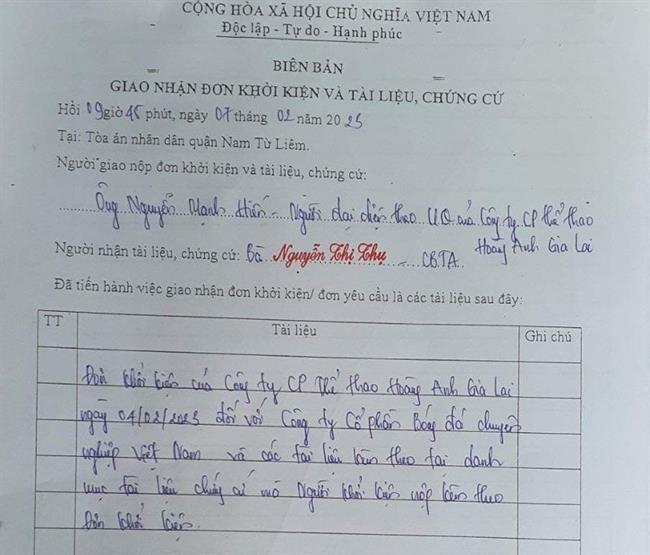 CỘNG HÒA XÃ HỘI CHỦ NGHĨA VIỆT NAM
Độc lập - Tự do - Hạnh phúc
BIÊN BẢN
GIAO NHẬN ĐƠN KHỞI KIỆN VÀ TÀI LIỆU, CHỨNG CỨ
Hồi 09 giờ 45 phút, ngày 07 tháng 02 năm 2023
Tại: Tòa án nhân dân quận Nam Từ Liêm.
Người giao nộp đơn khởi kiện và tài liệu, chứng cứ:
Ông Nguyễn Mạnh Hiến - Người đại diện theo UQ của Công ty CP thể thao
Hoàng Anh Gia Lai
Người nhận tài liệu, chứng cứ: bà Nguyễn Thị Thụ - CBTA
Đã tiến hành việc giao nhận đơn khởi kiện/ đơn yêu cầu là các tài liệu sau đây:
TT Tài liệu Ghi chú
Đơn khởi kiện của Công ty CP Thể thao Hoàng Anh Gia Lai
ngày 04/02/2023 đối với Công ty Cổ phần Bóng đá chuyên
nghiệp Việt Nam và các tài liệu kèm theo tại danh
mục tài liệu chứng cứ mà Người khởi kiện nộp kèm theo
Đơn khởi kiện.